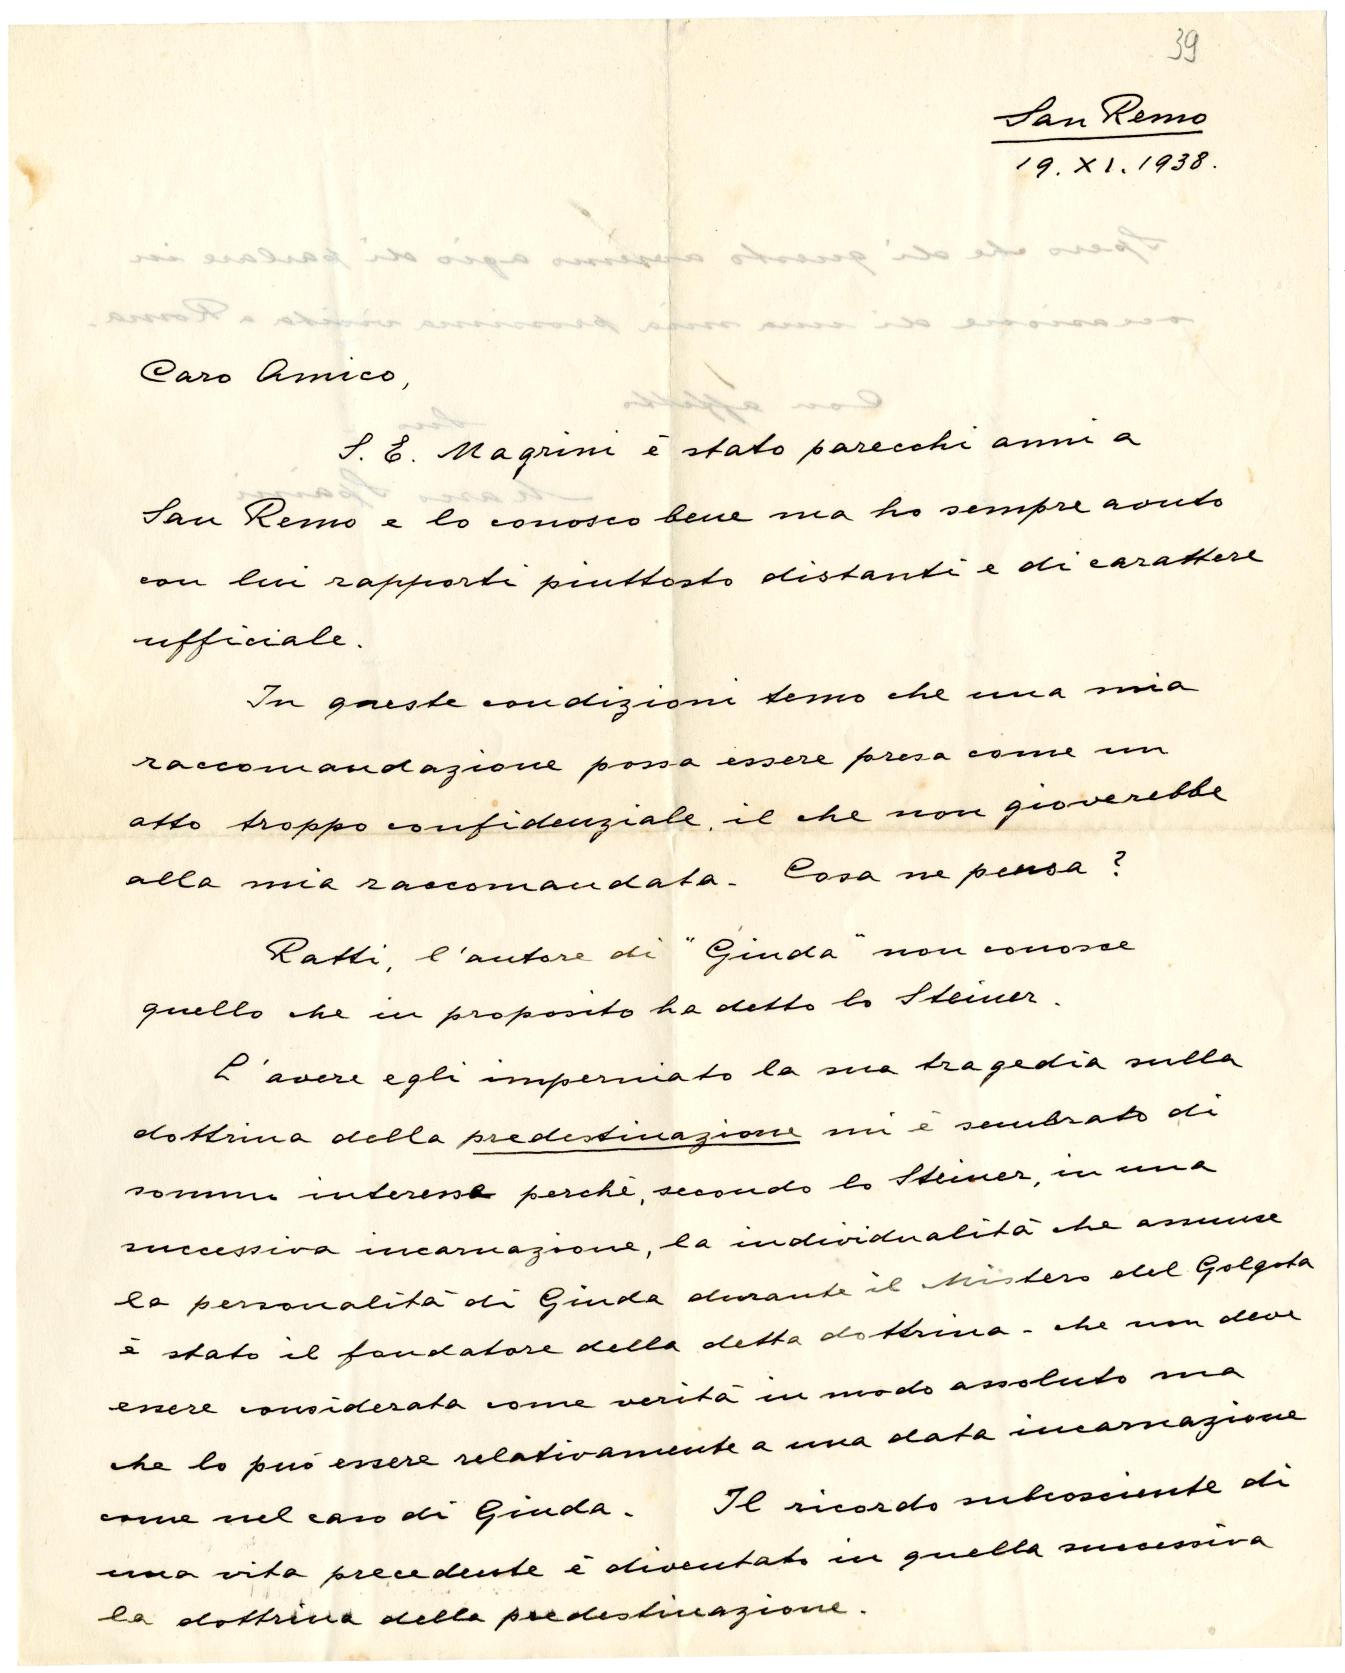 39
San Remo
19. XI. 1938.
Caro Amico,
S. E. Magrini è stato parecchi anni a
San Remo e lo conosco bene ma ho sempre avuto
con lui rapporti piuttosto distanti e di carattere
ufficiale.
In queste condizioni temo che una mia
raccomandazione possa essere presa come un
atto troppo confidenziale, il che non gioverebbe
alla mia raccomandata. Cosa ne pensa?
Ratti, l'autore di "Giuda" non conosce
quello che in proposito ha detto lo Steiner.
L'avere egli imperniato la sua tragedia sulla
dottrina della predestinazione mi è sembrato di
sommo interesse perchè, secondo lo Steiner, in una
successiva incarnazione, la individualità che assunse
la personalità di Giuda durante il Mistero del Golgota
è stato il fondatore della detta dottrina - che non deve
essere considerata come verità in modo assoluto ma
che lo può essere relativamente a una data incarnazione
come nel caso di Giuda. Il ricordo subcosciente di
una vita precedente è diventato in quella successiva
la dottrina della predestinazione.
Spero che di questo avremo agio di parlare in
occasione di una mia prossima visita a Roma.
Con affetto
Suo
Marco Spaini